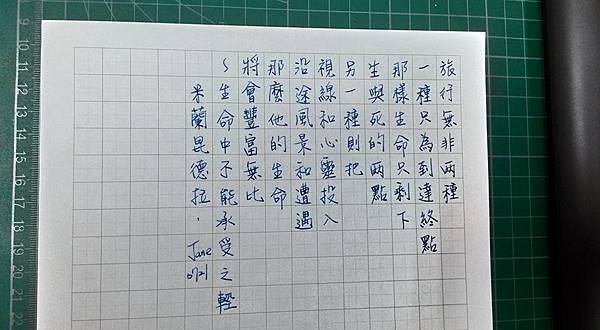 旅行無非兩種
一種只為到達終點
那樣生命只剩下
生與死的兩點
另一種則把
視線和心靈投入
沿途風景和遭遇
那麼他的生命
將會豐富無比
~生命中不能承受之輕
米蘭昆德拉. Jane
0721
9 10 11 12 13 14 15 16 17 18 19 20 21 22